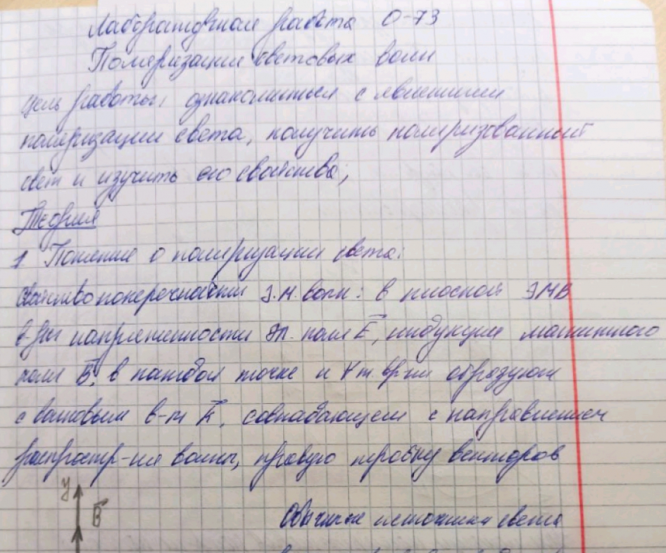 Лабораторная работа О-73
Поляризация световых волн
Цель работы: ознакомиться с явлением
поляризации света, получить поляризованный
свет и изучить его свойства,
Теория
1 Понятие о поляризации света:
Свойство поперечности э.м. волн: в плоской ЭМВ
в-ры напряженности эл. поля E, индукции магнитного
поля B, в каждой точке и ∀ m вр-ни образуют
с волновым в-м k, совпадающем с направлением
распростр-ия волны, правую тройку векторов
y
B
Обычные источники света